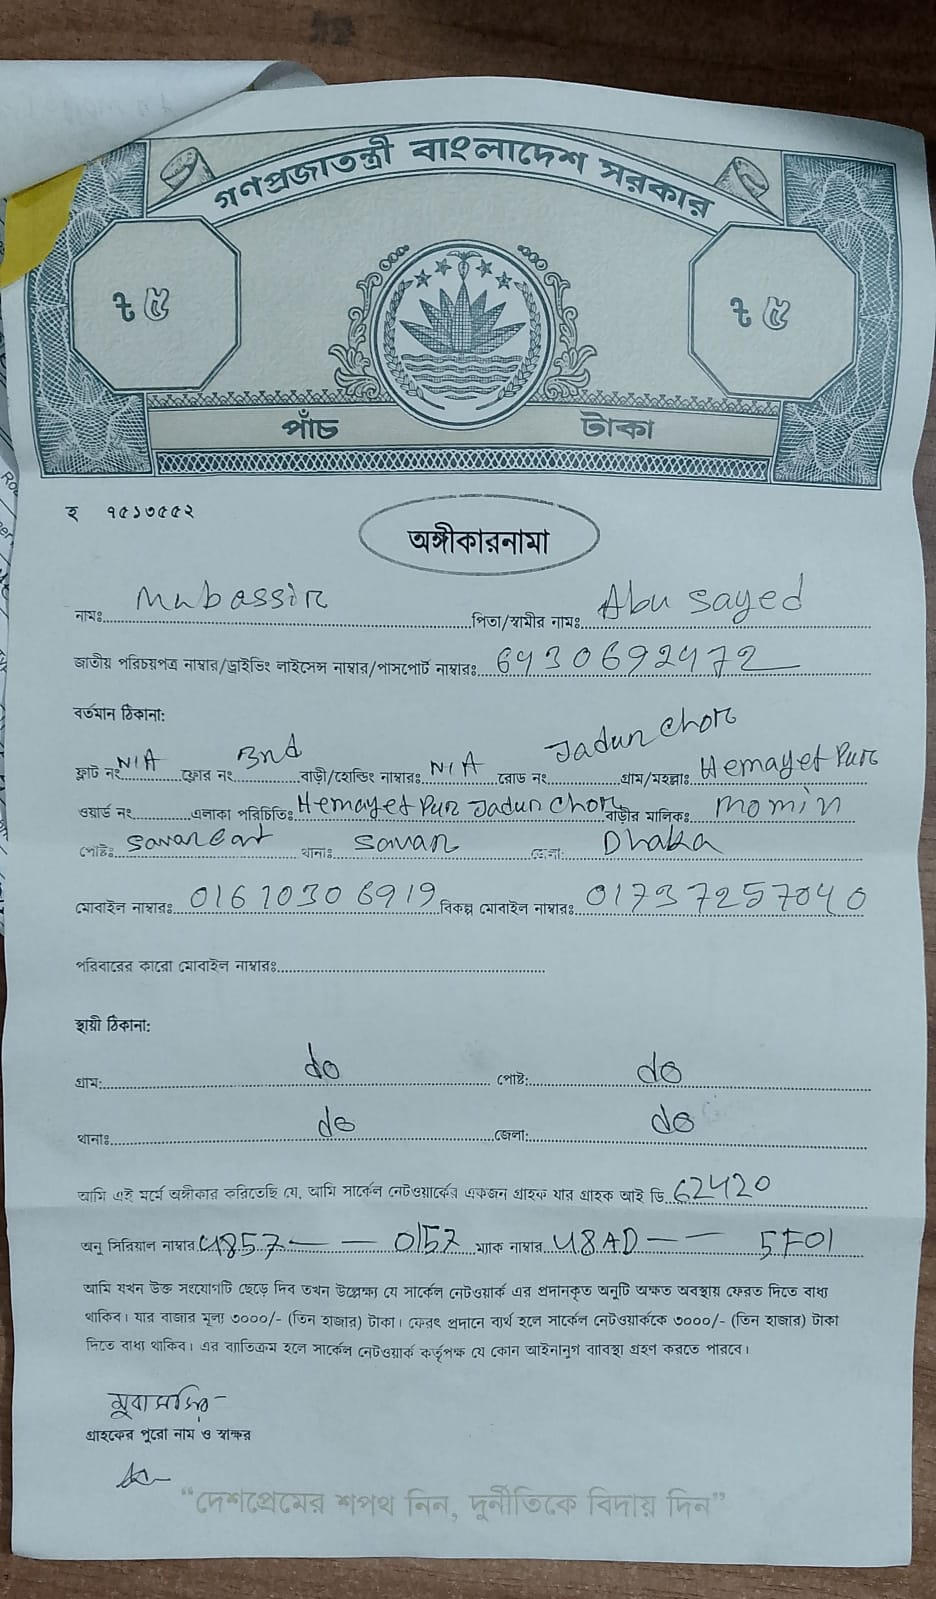 গণপ্রজাতন্ত্রী বাংলাদেশ সরকার
৳ ৫ ৳ ৫
পাঁচ টাকা
হ ৭৫১৩৫৫২
অঙ্গীকারনামা
নামঃ Mubassir পিতা/স্বামীর নামঃ Abu sayed
জাতীয় পরিচয়পত্র নাম্বার/ড্রাইভিং লাইসেন্স নাম্বার/পাসপোর্ট নাম্বারঃ 6430692472
বর্তমান ঠিকানা:
ফ্লাট নং N/A ফ্লোর নং 3nd বাড়ী/হোল্ডিং নাম্বারঃ N/A রোড নং Jadur chor গ্রাম/মহল্লাঃ Hemayet Pur
ওয়ার্ড নং এলাকা পরিচিতিঃ Hemayet Pur Jadur chor বাড়ীর মালিকঃ momin
পোষ্টঃ থানাঃ savar জেলা: Dhaka
মোবাইল নাম্বারঃ 01610306919 বিকল্প মোবাইল নাম্বারঃ 01737257040
পরিবারের কারো মোবাইল নাম্বারঃ
স্থায়ী ঠিকানা:
গ্রাম: do পোষ্ট: do
থানাঃ do জেলা: do
আমি এই মর্মে অঙ্গীকার করিতেছি যে, আমি সার্কেল নেটওয়ার্কের একজন গ্রাহক যার গ্রাহক আই ডি 62420
অনু সিরিয়াল নাম্বার 4857 -- 0157 ম্যাক নাম্বার 48AD -- 5F01
আমি যখন উক্ত সংযোগটি ছেড়ে দিব তখন উল্লেক্ষ্য যে সার্কেল নেটওয়ার্ক এর প্রদানকৃত অনুটি অক্ষত অবস্থায় ফেরত দিতে বাধ্য
থাকিব। যার বাজার মূল্য ৩০০০/- (তিন হাজার) টাকা। ফেরৎ প্রদানে ব্যর্থ হলে সার্কেল নেটওয়ার্ককে ৩০০০/- (তিন হাজার) টাকা
দিতে বাধ্য থাকিব। এর ব্যতিক্রম হলে সার্কেল নেটওয়ার্ক কর্তৃপক্ষ যে কোন আইনানুগ ব্যবস্থা গ্রহণ করতে পারবে।
মুবাসসির
গ্রাহকের পুরো নাম ও স্বাক্ষর
“দেশপ্রেমের শপথ নিন, দুর্নীতিকে বিদায় দিন”